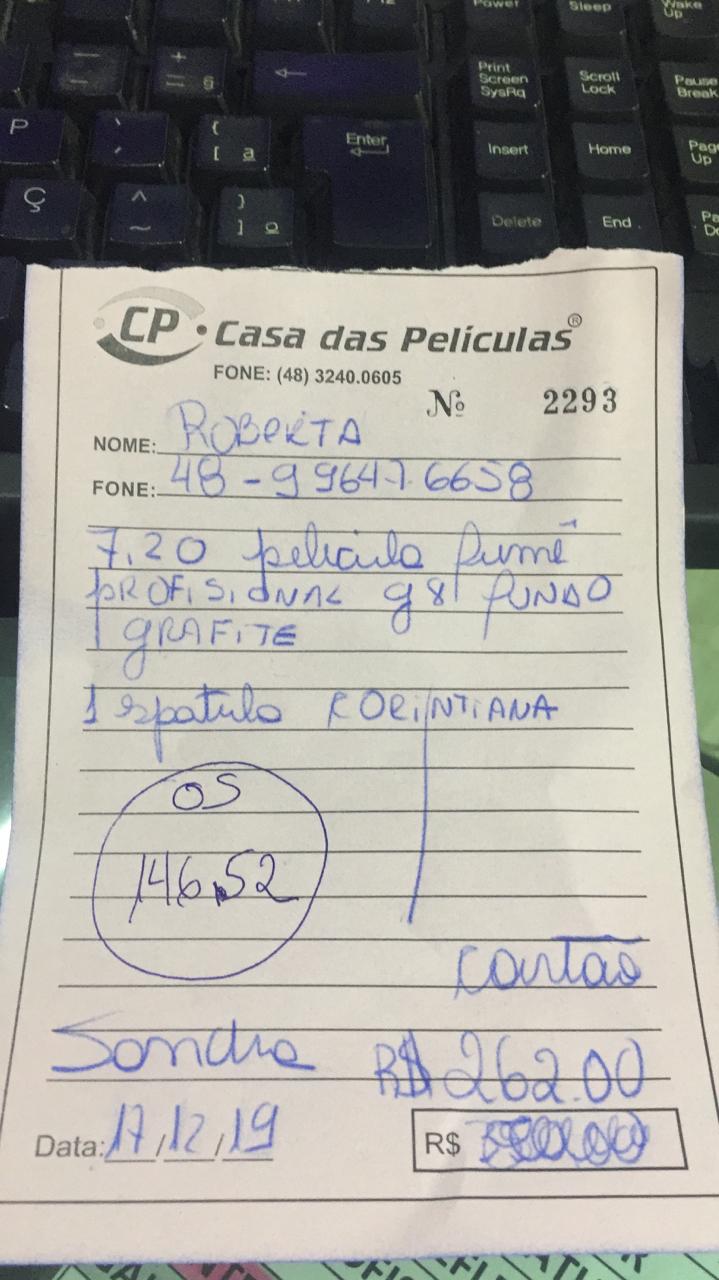 Power Sleep Wake Up
Print Screen SysRq Scroll Lock Pause Break
P { [ ª Enter Insert Home Page Up
Ç ^ ~ } ] º Delete End
CP Casa das Películas®
FONE: (48) 3240.0605
Nº 2293
NOME: ROBERTA
FONE: 48-99647.6658
7,20 pelicula fumê
PROFISIONAL g8 fUNDO
GRAFITE
1 espatula RORINTIANA
OS
146,52
Cartão
Sandra R$ 262.00
Data: 17/12/19 R$